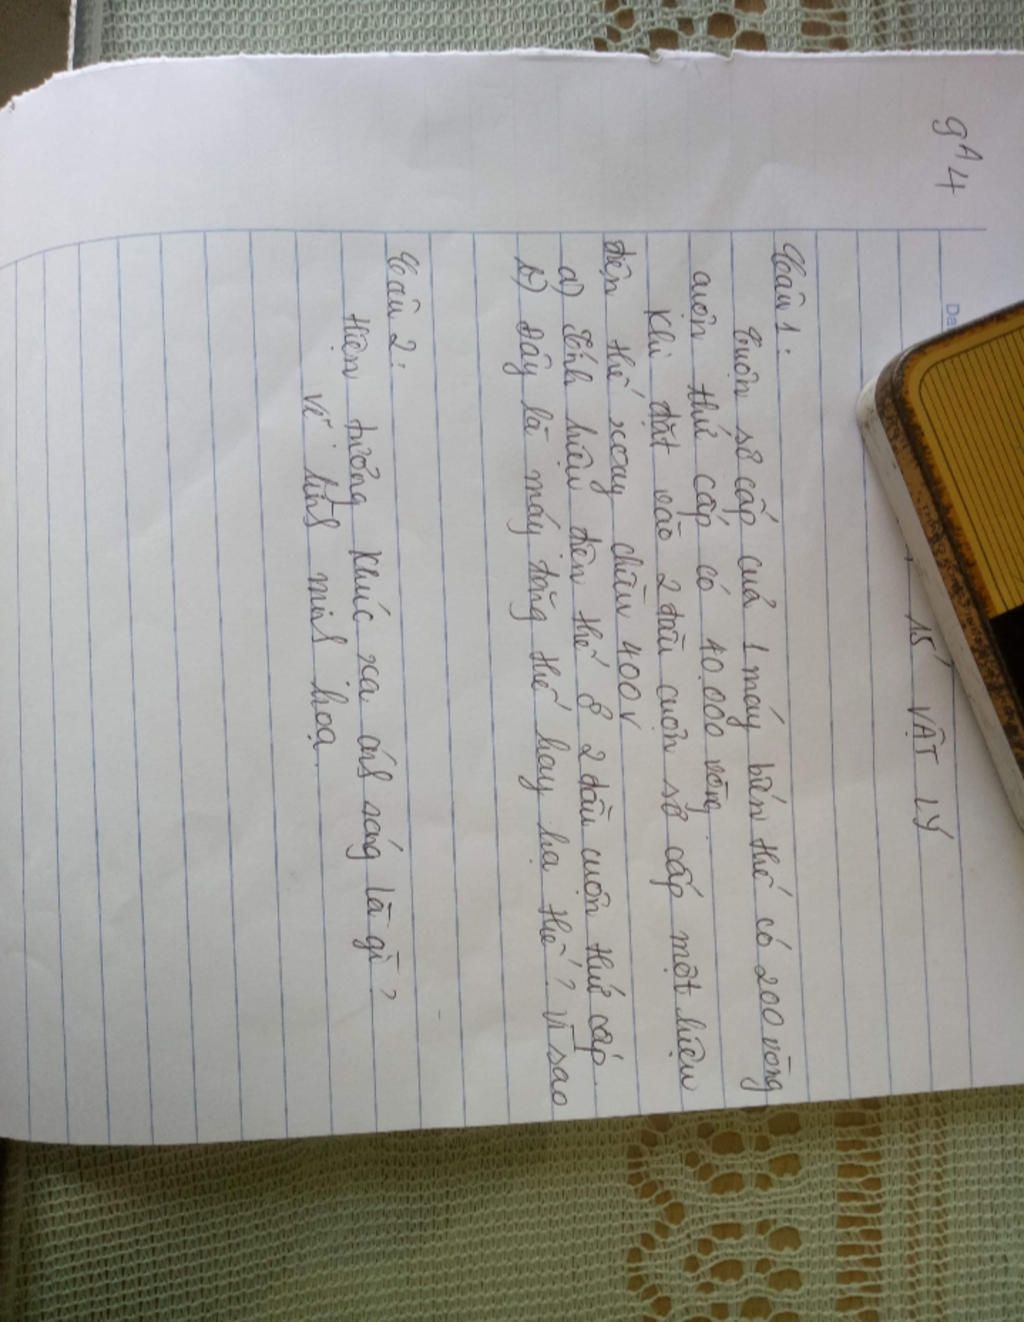 9A4
Da
15' VẬT LÝ
Câu 1:
Cuộn sơ cấp của 1 máy biến thế có 200 vòng
cuộn thứ cấp có 40 000 vòng.
Khi đặt vào 2 đầu cuộn sơ cấp một hiệu
điện thế xoay chiều 400V
a) Tính hiệu điện thế ở 2 đầu cuộn thứ cấp.
b) Đây là máy tăng thế hay hạ thế? Vì sao
Câu 2:
Hiện tượng khúc xạ ánh sáng là gì?
Vẽ hình minh hoạ.